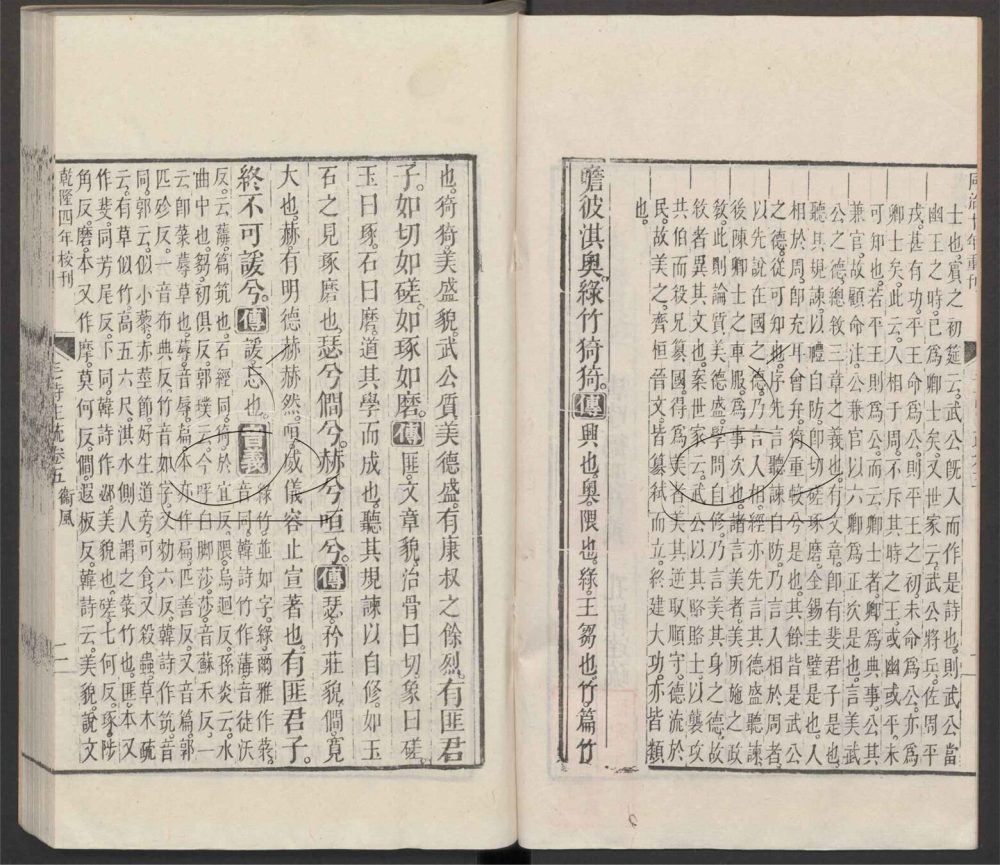 同治十年重刊
士也。賓之初筵云。武公旣入而作是詩也。則武公當
幽王之時。已爲卿士矣。又世家云。武公將兵。佐周平
戎。甚有功。平王命爲公。則平王之初。未命爲公。亦爲
卿士矣。此云。入相于周。不斥其時之王。或幽或平。未
可知也。若平王則爲公。而云卿士者。卿爲典事。公其
兼官。故顧命注。公兼官。以六卿爲正。次是也。言美武
公之德。總敘三章之義也。有文章。即有斐君子是也。
聽其規諫。以禮自防。即切磋琢磨。金錫圭璧是也。入
相於周。即充耳會弁。猗重較兮是也。其餘皆是武公
之德。從可知也。序先言聽諫自防。乃言入相於周者。
以先說在國之德。乃言入相。經亦先言其德盛聽諫。
後陳卿士之車服。爲事次也。諸言美者。美所施之政
敎。此則論質美德盛。學問自修。乃言美其身之德。故
敘者異其文也。案世家云。武公以其賂賂士。以襲攻
共伯。而殺兄簒國。得爲美者。美其逆取順守。德流於
民。故美之。齊桓晉文。皆簒弒而立。終建大功。亦皆類
也。
瞻彼淇奧。綠竹猗猗。傳興也。奧。隈也。綠。王芻也。竹。篇竹
也。猗猗。美盛貌。武公質美德盛。有康叔之餘烈。有匪君
子。如切如磋。如琢如磨。傳匪。文章貌。治骨曰切。象曰磋。
玉曰琢。石曰磨。道其學而成也。聽其規諫以自修。如玉
石之見琢磨也。瑟兮僩兮。赫兮咺兮。傳瑟。矜莊貌。僩。寬
大也。赫。有明德赫赫然。咺。威儀容止宣著也。有匪君子。
終不可諼兮。傳諼。忘也。音義綠竹。並如字。綠。爾雅作菉。音同。韓詩竹作䔭。音徒沃
反。云䔭。篇筑也。石經同。猗。於宜反。隈。烏迴反。孫炎云。水
曲中也。芻。初俱反。郭璞云。今呼白脚莎。莎音蘇禾反。一
云卽菉蓐草也。蓐音辱。扁。本亦作䔍。匹善反。又音篇。郭
匹殄反。一音布典反。竹音如字。又勑六反。韓詩作筑。音
同。郭云。似小藜。赤莖節。好生道旁。可食。又殺蟲。草木疏
云。有草似竹。高五六尺。淇水側人謂之菉竹也。匪。本又
作斐。同。芳尾反。下同。韓詩作邲。美貌也。磋。七何反。琢。陟
角反。磨。本又作摩。莫何反。僩。遐板反。韓詩云。美貌。說文
乾隆四年校刊
毛詩注疏卷五 衞風
二